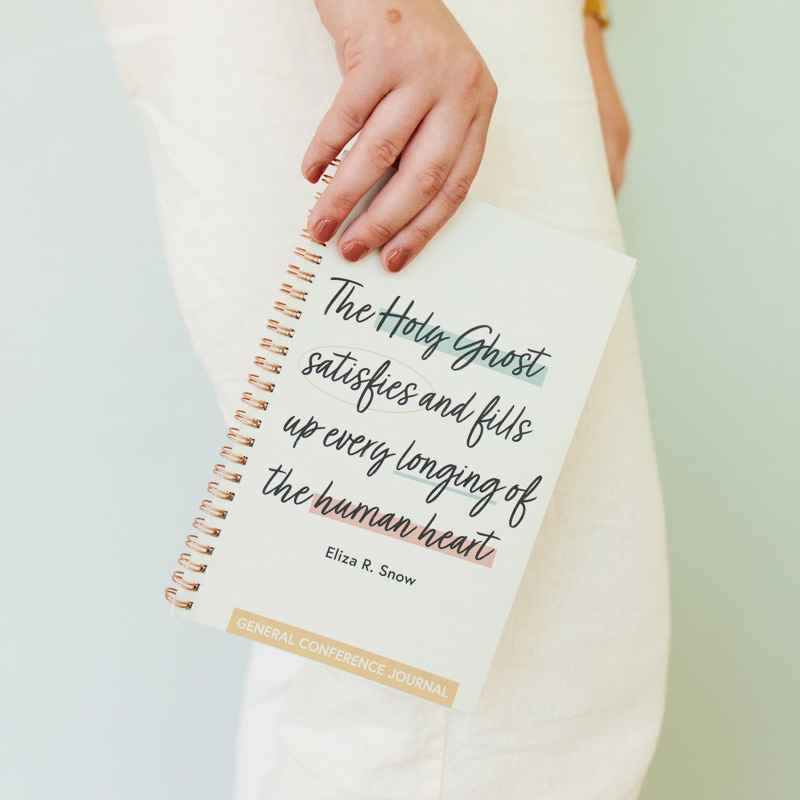 The Holy Ghost
satisfies and fills
up every longing of
the human heart
Eliza R. Snow
GENERAL CONFERENCE JOURNAL